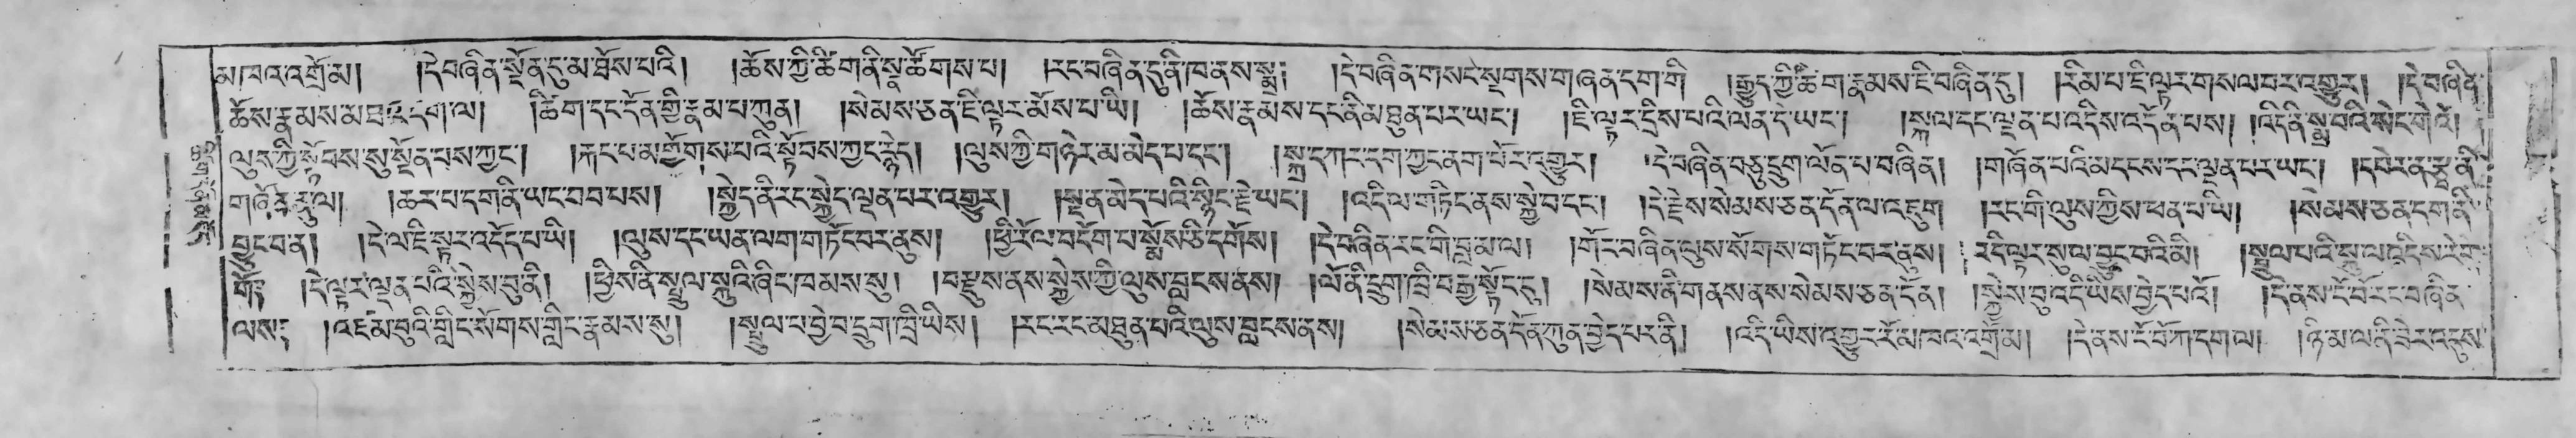 མ།ཁའ་འགྲོ་མ། །དེ་བཞིན་སྔོན་དུ་མ་ཐོས་པའི། །ཆོས་ཀྱི་ཚིག་ནི་སྣ་ཚོགས་པ། །རང་བཞིན་དུ་ནི་ཁ་ནས་སྨྲ༑ །དེ་བཞིན་གསང་སྔགས་གཞན་དག་གི །རྒྱུད་ཀྱི་ཚིག་རྣམས་ཇི་བཞིན་དུ། །རིམ་པ་ཇི་ལྟར་གསལ་བར་འགྱུར། །དེ་བཞིན་
ཆོས་རྣམས་མཐའ་དག་ལ། །ཚིག་དང་དོན་གྱི་རྣམ་པ་ཀུན། །སེམས་ཅན་ཇི་ལྟར་མོས་པ་ཡི། །ཆོས་རྣམས་དང་ནི་མཐུན་པར་ཡང༌། །ཇི་ལྟར་དྲིས་པའི་ལན་དེ་ཡང༌། །སྐལ་དང་ལྡན་པ་འདིས་འདོན་པས། །འདི་ནི་སྨྲ་བའི་སེང་གེའོ། །
ལུས་ཀྱི་སྟོབས་སུ་སྔོན་པས་ཀྱང༌། །རྐང་པ་མགྱོགས་པའི་སྟོབས་ཀྱང་རྙེད། །ལུས་ཀྱི་གཉེར་མ་མེད་པ་དང༌། །སྐྲ་དཀར་དག་ཀྱང་ནག་པོར་འགྱུར། །དེ་བཞིན་བཅུ་དྲུག་ལོན་པ་བཞིན། །གཞོན་པའི་མདངས་དང་ལྡན་པར་ཡང༌། །དཔེར་ན་རྩྭ་ནི་
གཞོན་ནུ་ལ། །ཆར་པ་དག་ནི་ཡང་བབ་པས། །སྐྱེད་ནི་རང་སྐྱེད་ལྡན་པར་འགྱུར། །སྔན་མེད་པའི་སྙིང་རྗེ་ཡང༌། །འདི་ལ་གཏིང་ནས་སྐྱེ་བ་དང༌། །དེ་རྗེས་སེམས་ཅན་དོན་ལ་འཇུག །རང་གི་ལུས་ཀྱིས་ཕན་པ་ཡི། །སེམས་ཅན་དག་ནི་
བྱུང་བ་ན། །དེ་ལ་ཇི་སྟར་འདོད་པ་ཡི། །ལུས་དང་ཡན་ལག་གཏོང་བར་ནུས། །ཕྱི་རོལ་བདོག་པ་སྨོས་ཅི་དགོས། །དེ་བཞིན་རང་གི་བླ་མ་ལ། །གོང་བཞིན་ལུས་སོགས་གཏོང་བར་ནུས། །འདི་ལྟར་སུལ་བྱུང་བའི་མི། །སྤྲུལ་པའི་སྐུ་ལ་
གོ༑ །དེ་ལྟར་ལྡན་པའི་སྐྱེས་བུ་ནི། །ཕྱིས་ནི་སྤྲུལ་སྐུའི་ཞིང་ཁམས་སུ། །བརྫུས་ནས་སྐྱེས་ཀྱི་ལུས་བླངས་ནས། །ལོ་ནི་དྲུག་ཁྲི་བརྒྱ་སྟོང་དུ། །སེམས་ནི་གནས་ནས་སེམས་ཅན་དོན། །སྐྱེས་བུ་འདི་ཡིས་བྱེད་པའོ། །དེ་ནས་ངོ་བོ་རང་བཞིན་
ལས༑ །འཛམ་བུའི་གླིང་སོགས་གླིང་རྣམས་སུ། །སྤྲུལ་པ་བྱེ་བ་དྲུག་ཁྲི་ཡིས། །རང་རང་མཐུན་པའི་ལུས་བླངས་ནས། །སེམས་ཅན་དོན་ཀུན་བྱེད་པར་ནི། །འདི་ཡིས་འགྱུར་རོ་མ།ཁའ་འགྲོ་མ། །དེ་ནས་ངོ་བོ་ཀ་དག་ལ། །ཉི་མ་ལ་ནི་ཟེར་འདུས་